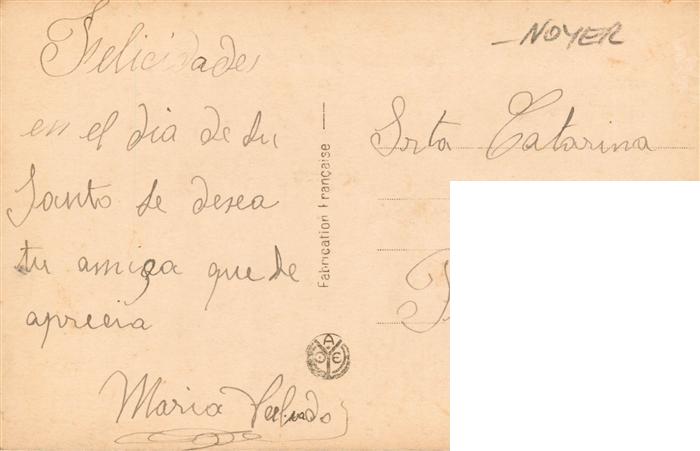 Felicidades
en el dia de tu
Santo te desea
tu amiga que te
aprecia
Maria
Fabrication Française
NOYER
Srta Catarina